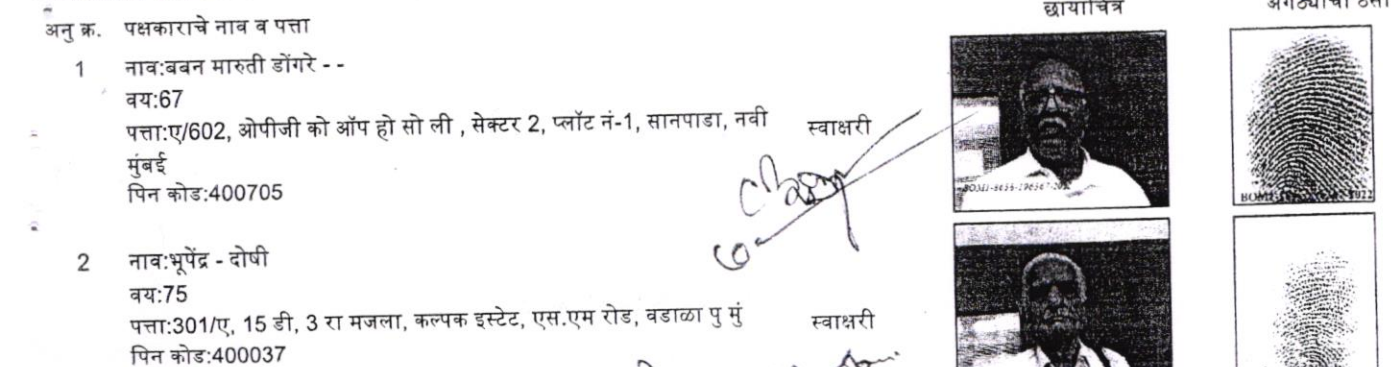 छायाचित्र
अनु क्र. पक्षकाराचे नाव व पत्ता
1 नाव:बबन मारुती डोंगरे - -
वय:67
पत्ता:ए/602, ओपीजी को ऑप हो सो ली , सेक्टर 2, प्लॉट नं-1, सानपाडा, नवी
मुंबई
पिन कोड:400705
स्वाक्षरी
2 नाव:भूपेंद्र - दोषी
वय:75
पत्ता:301/ए, 15 डी, 3 रा मजला, कल्पक इस्टेट, एस.एम रोड, वडाळा पु मुं
पिन कोड:400037
स्वाक्षरी